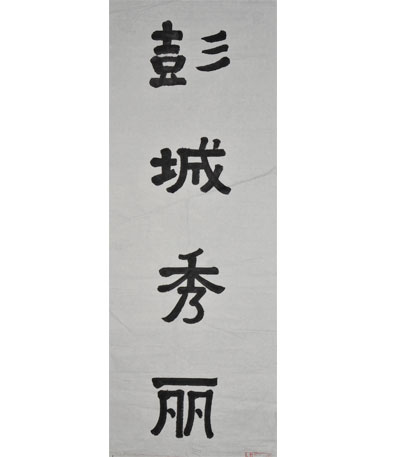 彭城秀丽